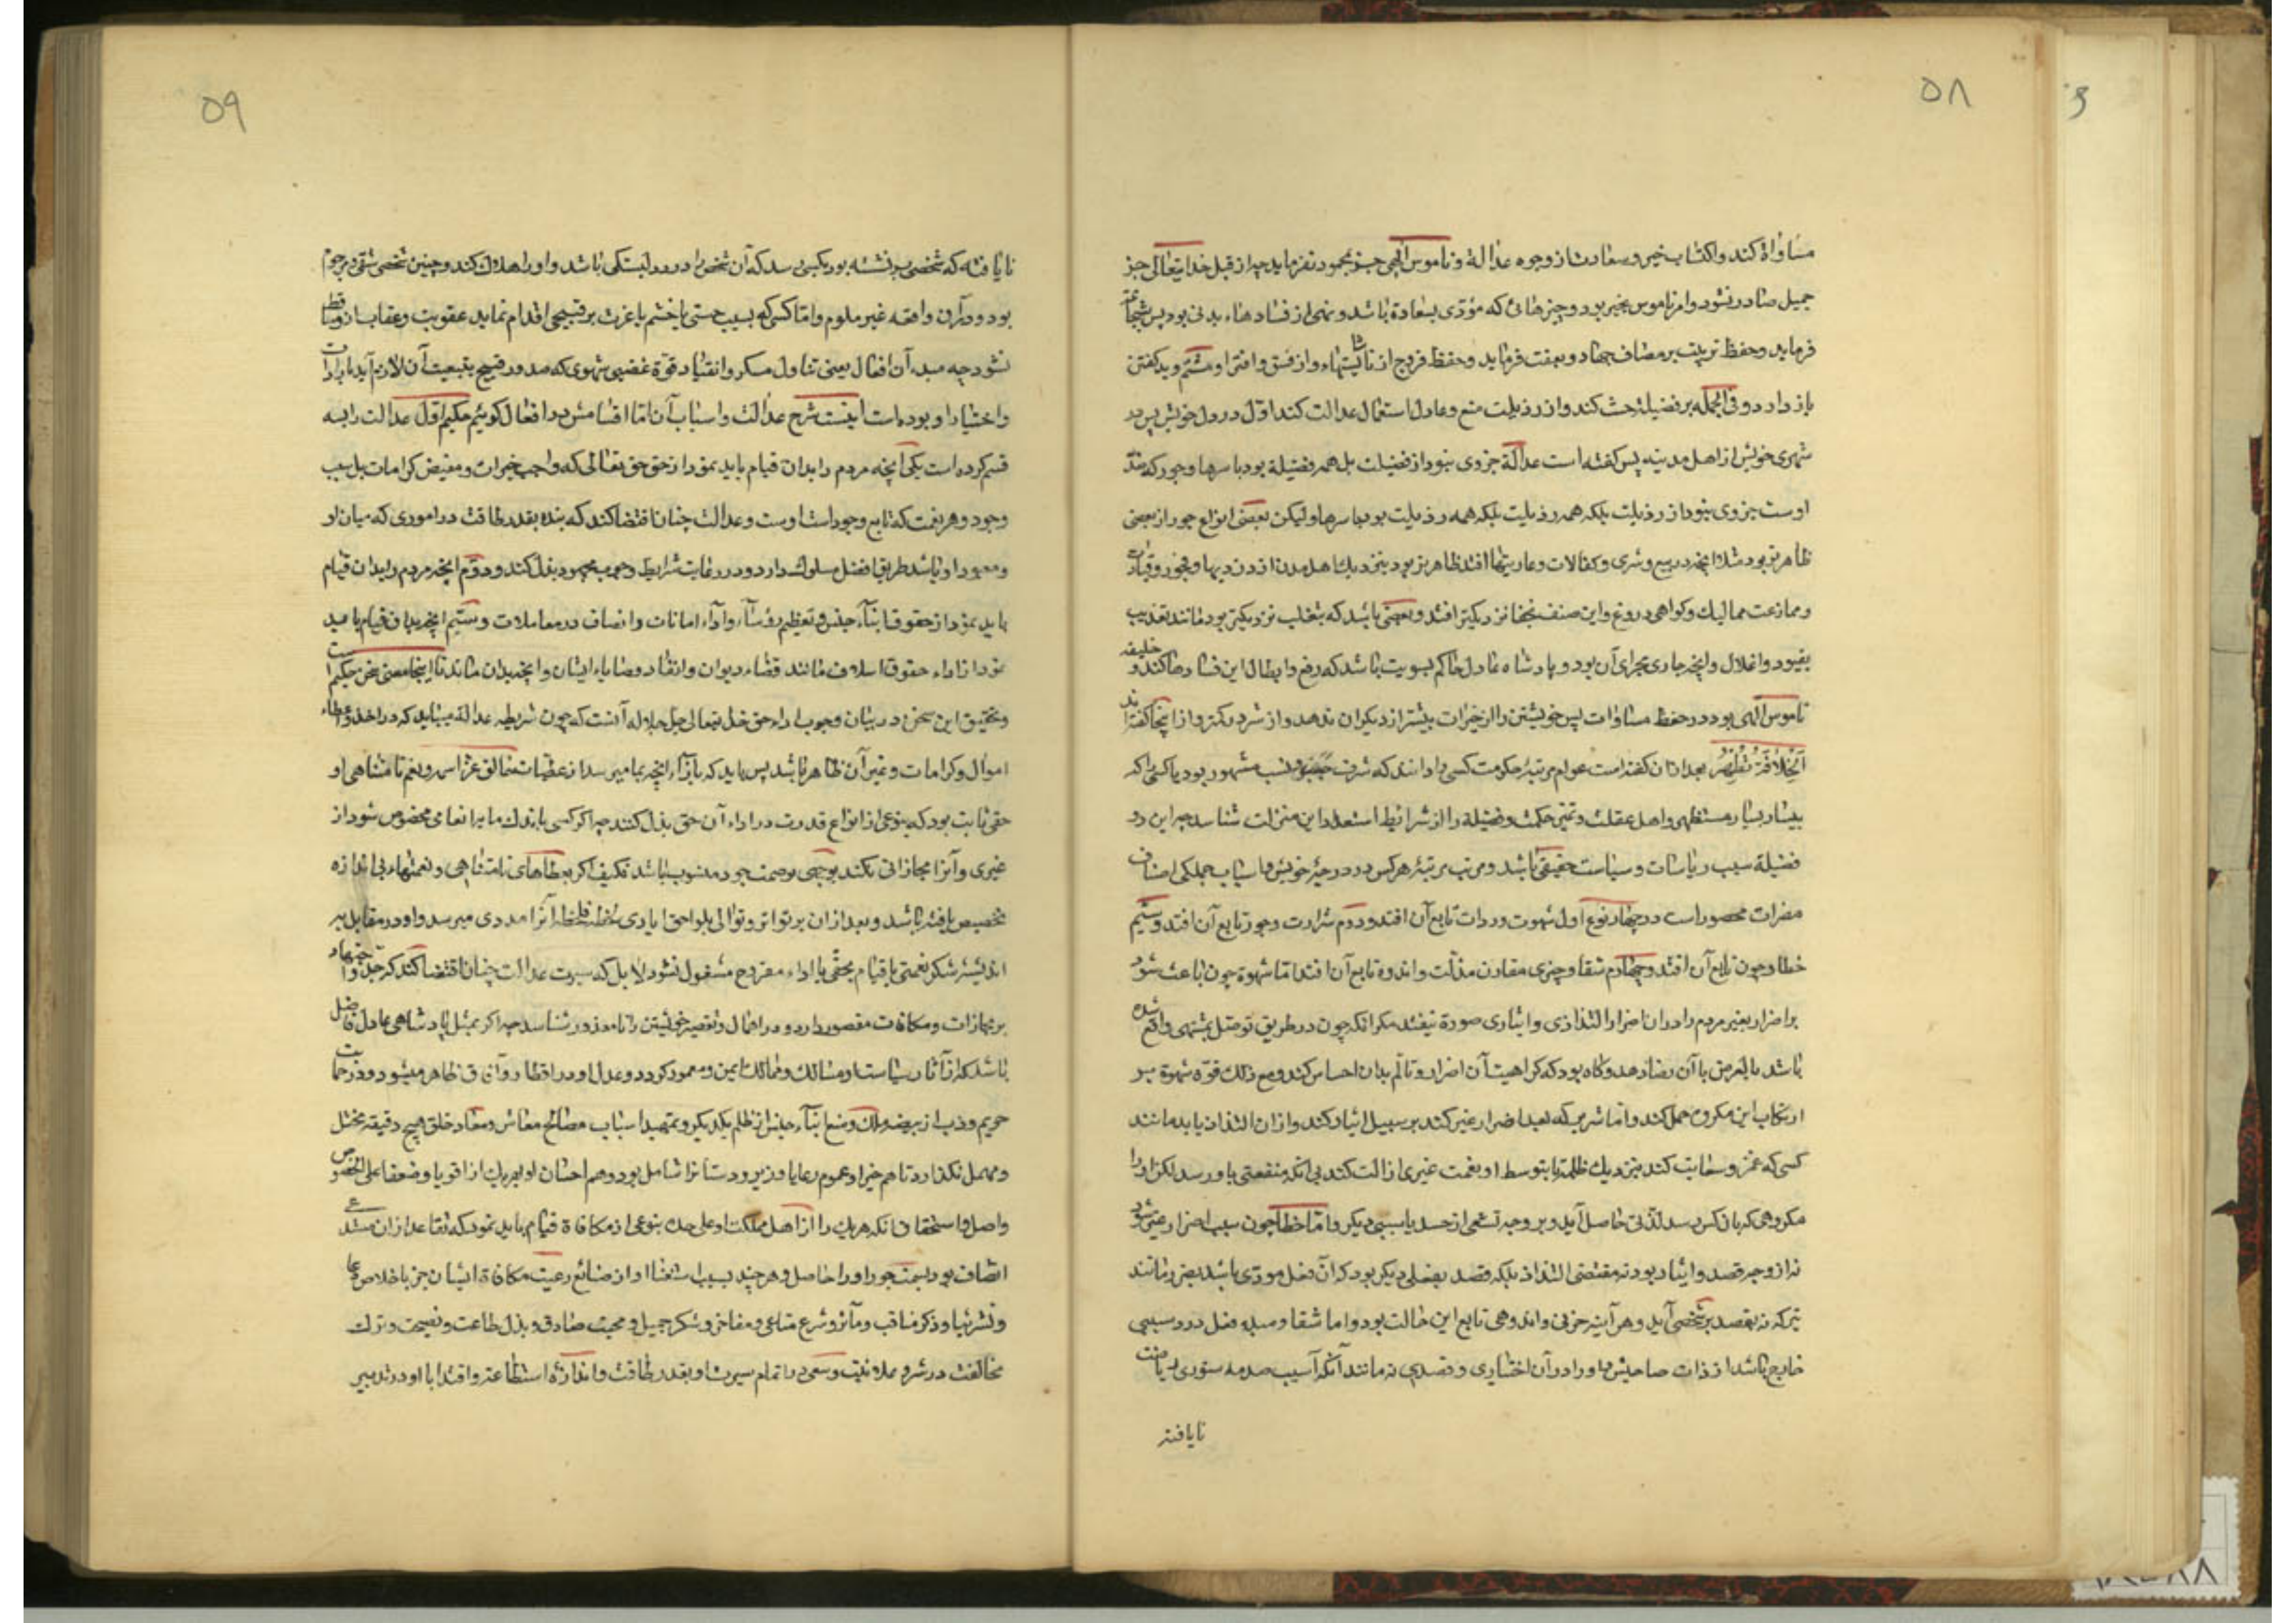 ۵۸
مساواة کند و اکتساب خیر و سعادت از وجوه عدالة و ناموس الهی جز بمحمود نفرماید چه از قبل خدایتعالی جز
جمیل صادر نشود و امر ناموس بخیر بود و چیزهائی که مؤدی بسعادة باشد و نهی از فسادهاء بدنی بود پس بشجاعة
فرماید و حفظ ترتیب بر مصاف جهاد و بعفت فرماید و حفظ فروج از ناشایستها و از فسق و افترا و شتم و بد گفتن
باز دارد و فی الجمله بر فضیلة حث کند و از رذیلت منع و عادل استعمال عدالت کند اول در دل خویش پس در
شهری خویش از اهل مدینه پس گفته است عدالة جزوی نبود از فضیلت بل همه فضیلة بود باسرها و جور که ضد
اوست جزوی نبود از رذیلت بلکه همه رذیلت بود باسرها و لیکن بعضی انواع جور از بعضی
ظاهرتر بود مثلا آنچه در بیع و شری و کفالات و عاریتها افتد ظاهرتر بود بنزدیک اهل مدن از دزدیها و فجور و قیادت
و مخادعت ممالیک و گواهی دروغ و این صنف بجفا نزدیکتر افتد و بعضی باشد که بتغلب نزدیکتر بود مانند تعذیب
بقیود و اغلال و آنچه جاری مجرای آن بود و پادشاه عادل حاکم بسویت باشد که رفع و ابطال این فسادها کند و خلیفه
ناموس الهی بود در حفظ مساوات پس خویشتن را از خیرات بیشتر از دیگران ندهد و از شر کمتر و از اینجا گفته‌اند
الخلافة تطهر بعد از ان گفته است عوام مرتبه حکومت کسی را دانند که بشرف نسب مشهور بود یا کسی را که
بیسار بسیار مستظهر و اهل عقل و تمیز حکمت و فضیلة را از شرائط استعداد این منزلت شناسد چه این دو
فضیلة سبب ریاسات و سیاست حقیقی باشد و مرتب مرتبه هر کس در درجه خویش و اسباب جملگی اصناف
مضرات محصور است در چهار نوع اول شهوت و رداءت تابع آن افتد و دوم شرارت و جور تابع آن افتد و سیم
خطا و حزن تابع آن افتد و چهارم شقا و حیرتی مقارن مذلت و اندوه تابع آن افتد اما شهوة چون باعث شود
بر اضرار بغیر مردم را در ان اضرار التذاذی و ایثاری صورة نیفتد مگر آنکه چون در طریق توصل بمشتهی واقع شده
باشد بالعرض با آن رضا دهد و گاه بود که کراهیت آن اضرار و تألم بدان احساس کند و مع ذلک قوة شهوة بر
ارتکاب این مکروه حمل کند و اما شریر که تعمد اضرار غیر کند بر سبیل ایثار کند و از ان التذاذ یابد مانند
کسی که غمز و سعایت کند بنزدیک ظلمة تا بتوسط او نعمت غیری ازالت کند بی آنکه منفعتی باو رسد لکن او را
مکروهی که بان کس رسد لذتی حاصل آید و بر وجه تشفی از حسد یا سببی دیگر و اما خطا چون سبب اضرار غیر شود
نه از وجه قصد و ایثار بود نه مقتضی التذاذ بلکه قصد بفعلی دیگر بود که آن فعل مودی باشد بضرر مانند
تیر که نه بقصد بر شخصی آید و هر آینه حزنی و اندوهی تابع این حالت بود و اما شقا و مبدء فعل در و سببی
خارج باشد از ذات صاحبش و او را در آن اختیاری و قصدی نه مانند آنکه آسیب صدمه ستوری ریاضت
نایافته
۵۹
نایافته که شخصی بر نشسته بود بکسی رسد که آن شخص را در و دلبستگی باشد و او را هلاک کند و چنین شخص شقی و مرحوم
بود و در آن واقعه غیر ملوم و اما کسی که بسبب مستی یا خشم یا غیرت بر قبیحی اقدام نماید عقوبت و عقاب از و ساقط
نشود چه مبدء آن افعال یعنی تناول مسکر و انقیاد قوة غضبی و شهوی که صدور قبیح بتبعیت آن لازم آید بارادت
و اختیار او بوده است اینست شرح عدالت و اسباب آن اما اقسامش در افعال گوئیم حکیم اول عدالت را بسه
قسم کرده است یکی آنچه مردم را بدان قیام باید نمود از حق حق تعالی که واهب خیرات و مفیض کرامات بل سبب
وجود و هر نعمت که تابع وجود است اوست و عدالت چنان اقتضا کند که بنده بقدر طاقت در اموری که میان او
و معبود او باشد طریق افضل مسلوک دارد و در رعایت شرایط وجوب مجهود بذل کند و دوم آنچه مردم را بدان قیام
باید نمود از حقوق ابناء جنس و تعظیم رؤساء و اداء امانات و انصاف در معاملات و سیم آنچه بدان قیام باید
نمود از اداء حقوق اسلاف مانند قضاء دیون و انفاذ وصایاء ایشان و آنچه بدان ماند تا اینجا معنی سخن حکیم است
و تحقیق این سخن در بیان وجوب اداء حق خدایتعالی جل جلاله آنست که چون شریطه عدالة میباید که در اخذ و اعطاء
اموال و کرامات و غیر آن ظاهر باشد پس باید که بازاء آنچه بما میرسد از عطیات خالق عز اسمه و نعم نامتناهی او
حقی ثابت بود که بنوعی از انواع قدرت در اداء آن حق بذل کنند چه اگر کسی باندک مایه انعامی مخصوص شود از
غیری و آنرا مجازاتی نکند بوجهی بوصمت جور منسوب باشد فکیف اگر بعطاهای نامتناهی و نعمتهاء بی اندازه
تخصیص یافته باشد و بعد از ان بر تواتر و توالی بلواحق ایادی لحظة فلحظة آنرا مددی میرسد و او در مقابل به
اندیشه شکر نعمتی یا قیام بحقی یا اداء معروفی مشغول نشود لا بل که سیرت عدالت چنان اقتضا کند که جد و اجتهاد
بر مجازات و مکافات مقصور دارد و در اهمال و تقصیر خویشتن را نامعذور شناسد چه اگر بمثل پادشاهی عادل فاضل
باشد که از آثار سیاست او مسالک و ممالک ایمن و معمور گردد و عدل او در اقطار و آفاق ظاهر میشود و در حمایت
حریم و ذب از بیضه ملک و منع ابناء جنس از ظلم یکدیگر و تمهید اسباب مصالح معاش و معاد خلق هیچ دقیقه مختل
و مهمل نگذارد تا هم خیر او عموم رعایا و زیردستانرا شامل بود و هم احسان او بهریک از اقویا و ضعفا علی الخصوص
واصل و استحقاق آنکه هر یک را از اهل مملکت او علی حده بنوعی از مکافاة قیام باید نمود که تقاعد از ان مستدعی
اتصاف بود بسمت جور او را حاصل و هر چند بسبب استغناء او از صنائع رعیت مکافاة ایشان جز باخلاص دعا
و نشر ثنا و ذکر مناقب و مآثر و شرح مساعی و مفاخر و شکر جمیل و محبت صادق و بذل طاعت و نصیحت و ترک
مخالفت در سر و علانیت و سعی در اتمام سیرت او بقدر طاقت و اندازه استطاعت و اقتدا باو در تدبیر